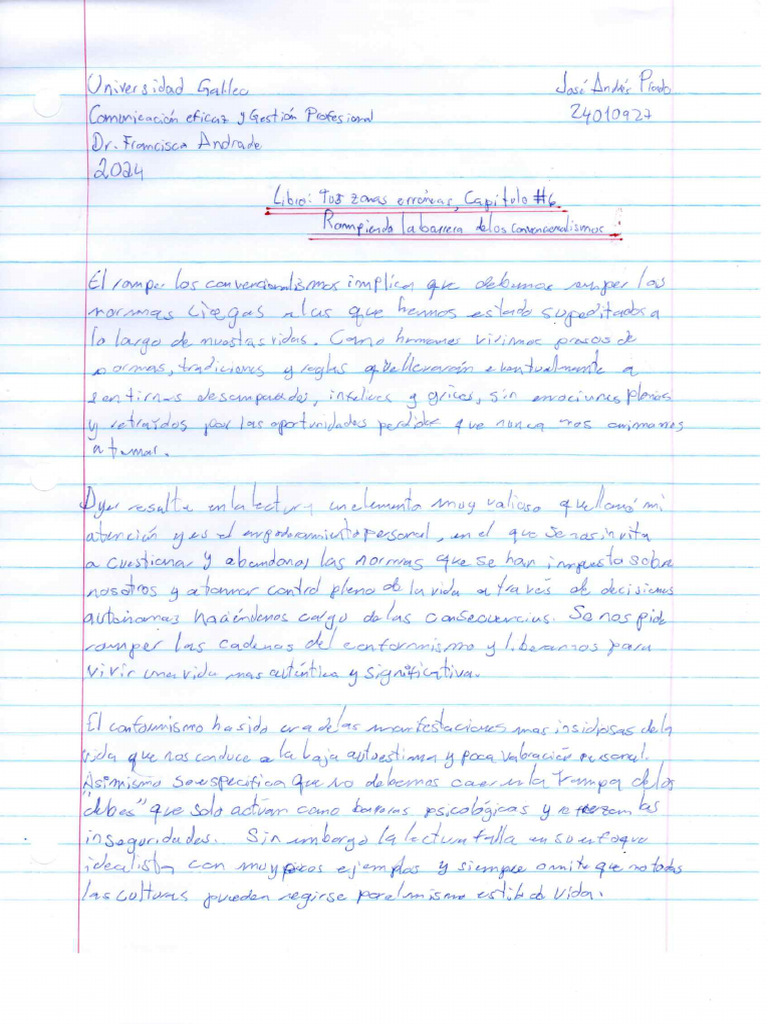 Universidad Galileo
José Andrés Prado
Comunicación eficaz y Gestión Profesional
24010927
Dr. Francisco Andrade
2024
Libro: Tus zonas erróneas, Capitulo #6
Rompiendo la barrera de los convencionalismos
El romper los convencionalismos implica que debemos romper las
normas ciegas a las que hemos estado supeditados a
lo largo de nuestras vidas. Como humanos vivimos presos de
normas, tradiciones y reglas que llevarán eventualmente a
sentirnos desamparados, infelices y grises, sin emociones plenas
y retraídos por las oportunidades perdidas que nunca nos animamos
a tomar.
Dyer resalta en la lectura un elemento muy valioso que llamó mi
atención y es el empoderamiento personal, en el que se nos invita
a cuestionar y abandonar las normas que se han impuesto sobre
nosotros y a tomar control pleno de la vida a través de decisiones
autónomas haciéndonos cargo de las consecuencias. Se nos pide
romper las cadenas del conformismo y liberarnos para
vivir una vida mas auténtica y significativa.
El conformismo ha sido una de las manifestaciones mas insidiosas de la
vida que nos conduce a la baja autoestima y poca valoración personal.
Asimismo se especifica que no debemos caer en la trampa de los
"debes" que solo actúan como barreras psicológicas y refuerzan las
inseguridades. Sin embargo la lectura falla en su enfoque
idealista con muy pocos ejemplos y siempre omite que no todas
las culturas pueden regirse por el mismo estilo de vida.